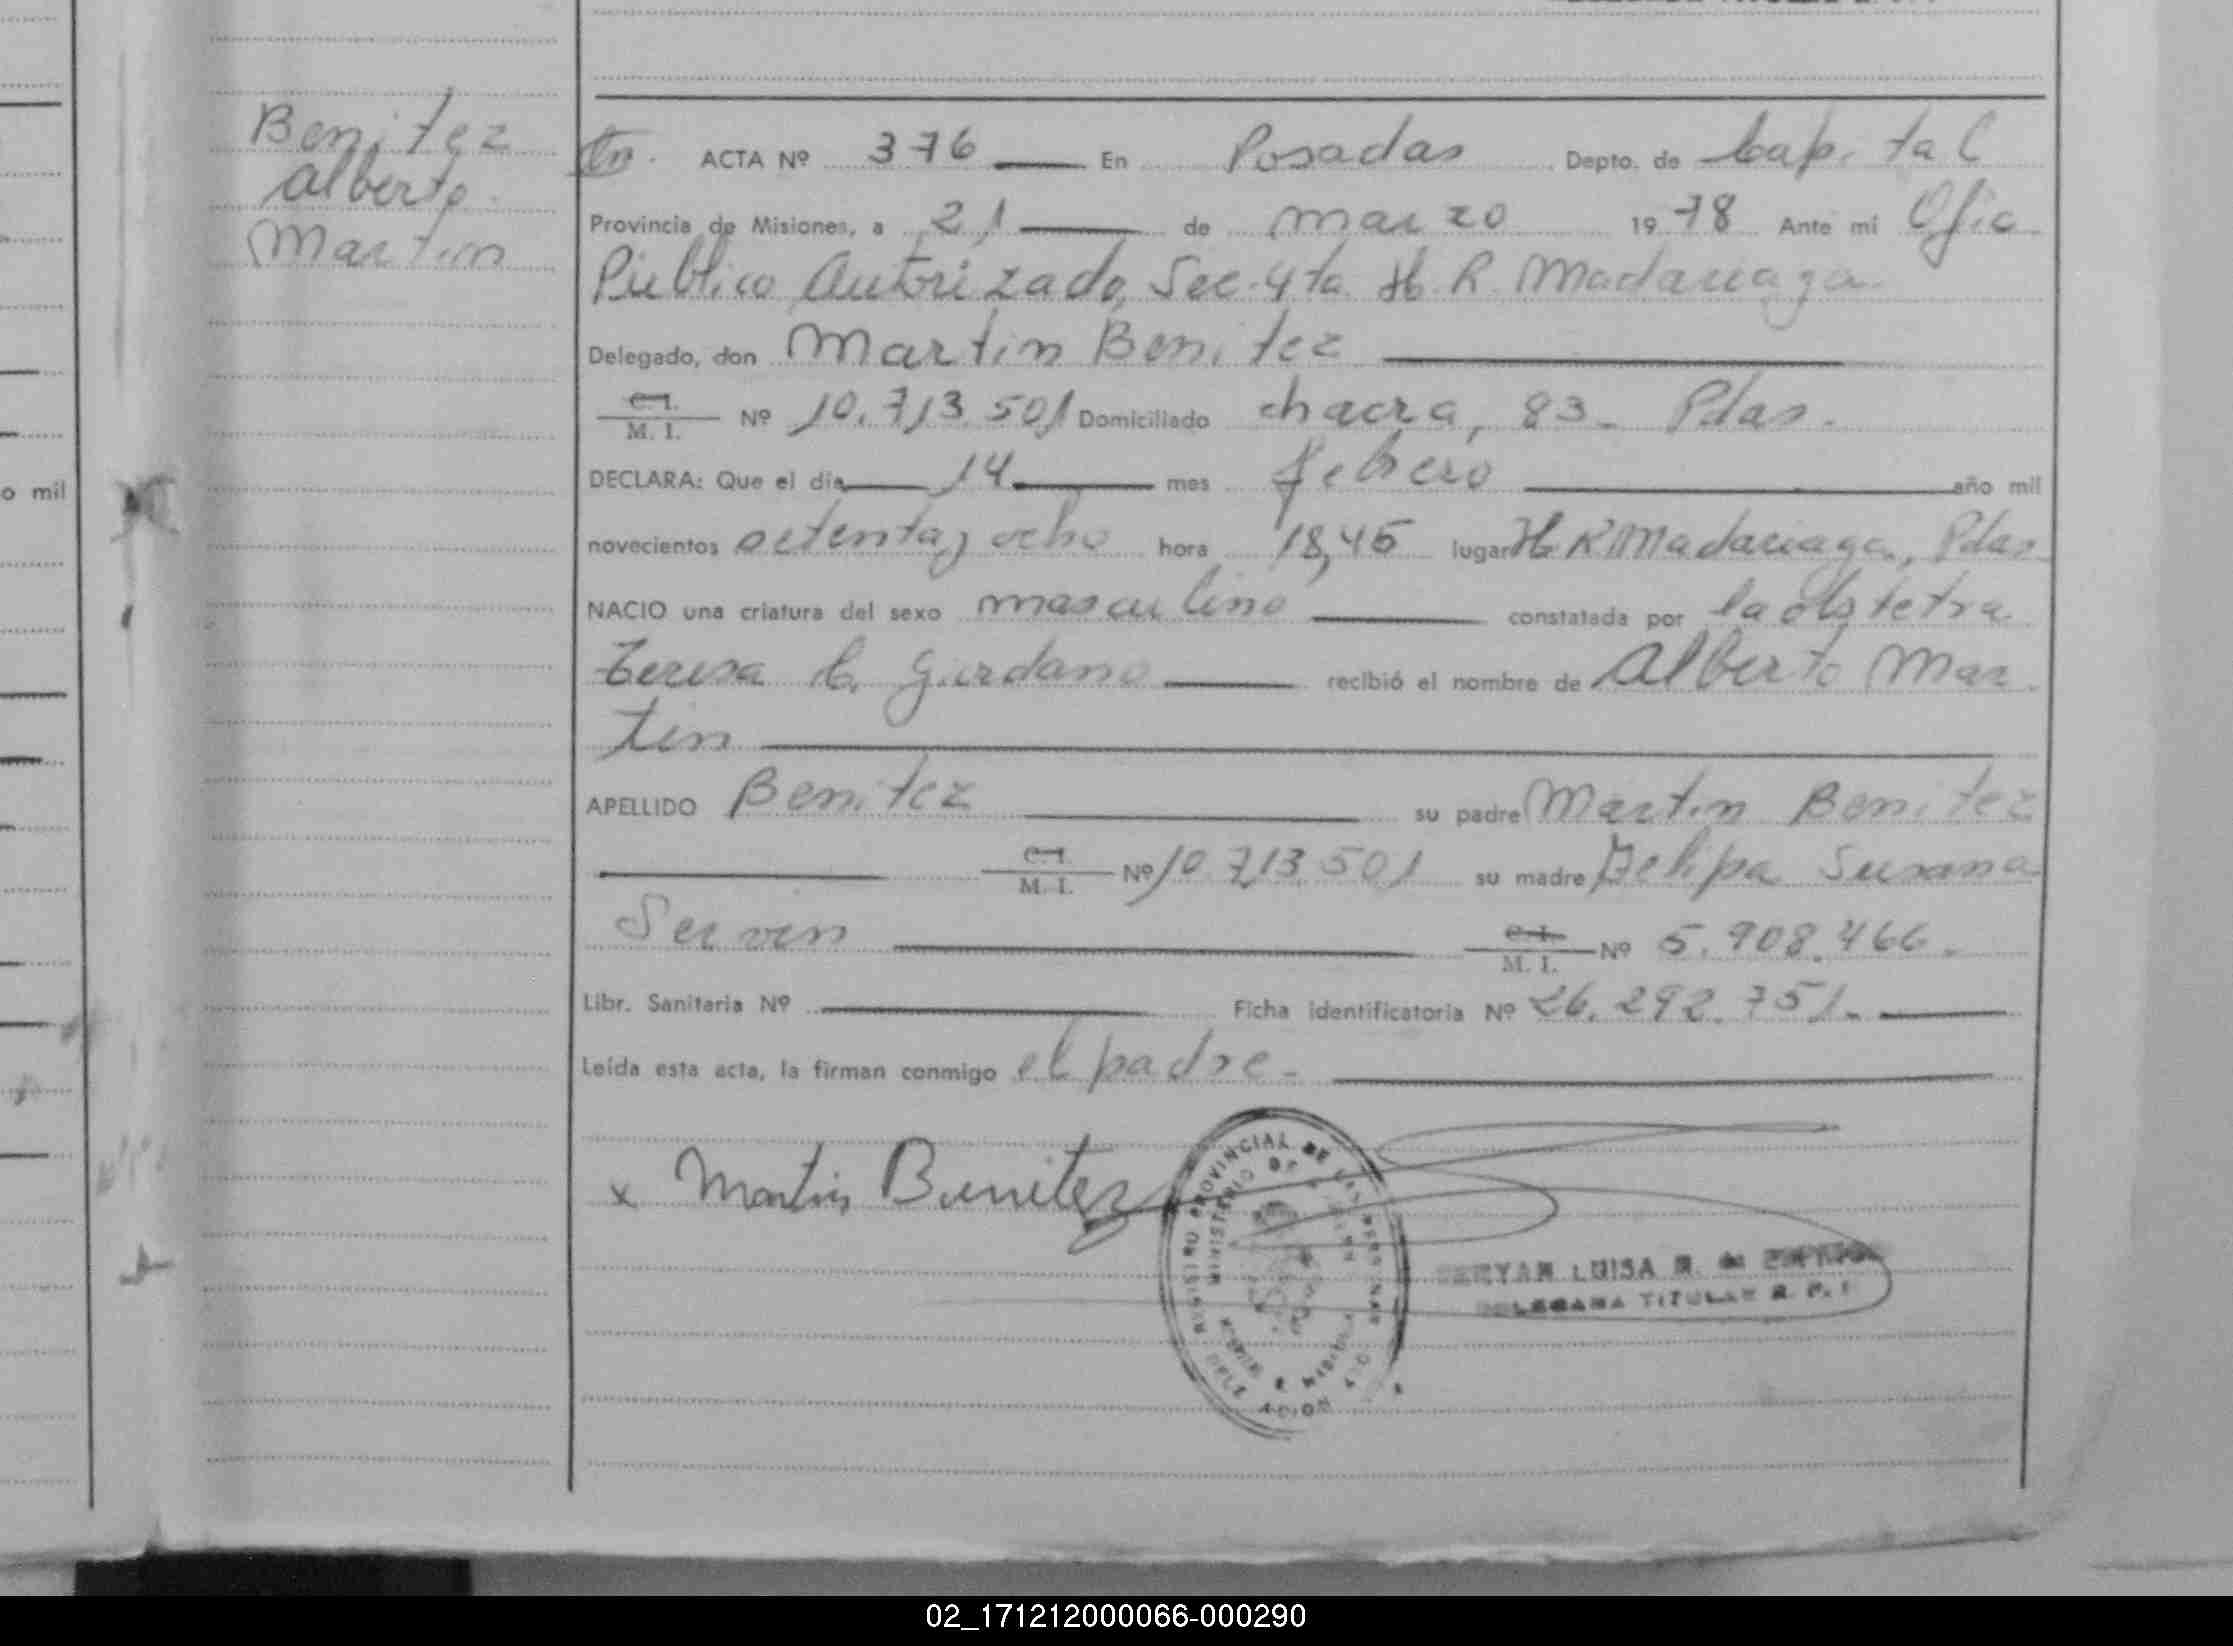 Benitez
Alberto
Martin
o mil
ACTA Nº 376 En Posadas Depto. de Capital
Provincia de Misiones, a 21 de marzo 1978 Ante mi Ofic.
Público Autorizado, Sec. 4ta. H. R. Madariaga.
Delegado, don Martin Benitez
C. I.
M. I. Nº 10.713.501 Domiciliado chacra, 83. Pdas.
DECLARA: Que el día 14 mes febrero año mil
novecientos setenta y ocho hora 18,45 lugar H. R. Madariaga, Pdas
NACIO una criatura del sexo masculino constatada por la obstetra.
Teresa C. Giordano recibió el nombre de Alberto Mar
tin
APELLIDO Benitez su padre Martin Benitez
C. I.
M. I. Nº 10.713.501 su madre Felipa Susana
Servin C. I.
M. I. Nº 5.908.466.
Libr. Sanitaria Nº Ficha identificatoria Nº 26.292.751.
Leída esta acta, la firman conmigo el padre.
x Martin Benitez
PROVINCIAL DE LAS PERSONAS
MINISTERIO DE
LUISA R. de
DELEGADA TITULAR R. P.
02_171212000066-000290